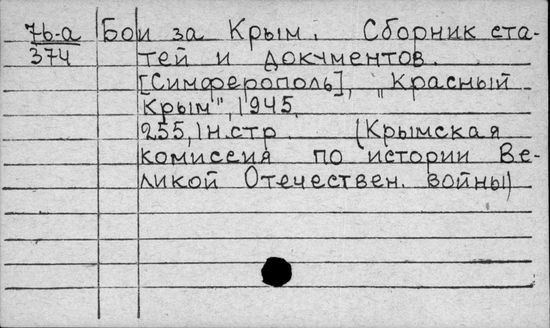 7б-а Бои за Крым. Сборник ста-
374 тей и документов.
[Симферополь], "Красный
Крым", 1945.
255,1н.стр. (Крымская
комиссия по истории Ве-
ликой Отечествен. войны)